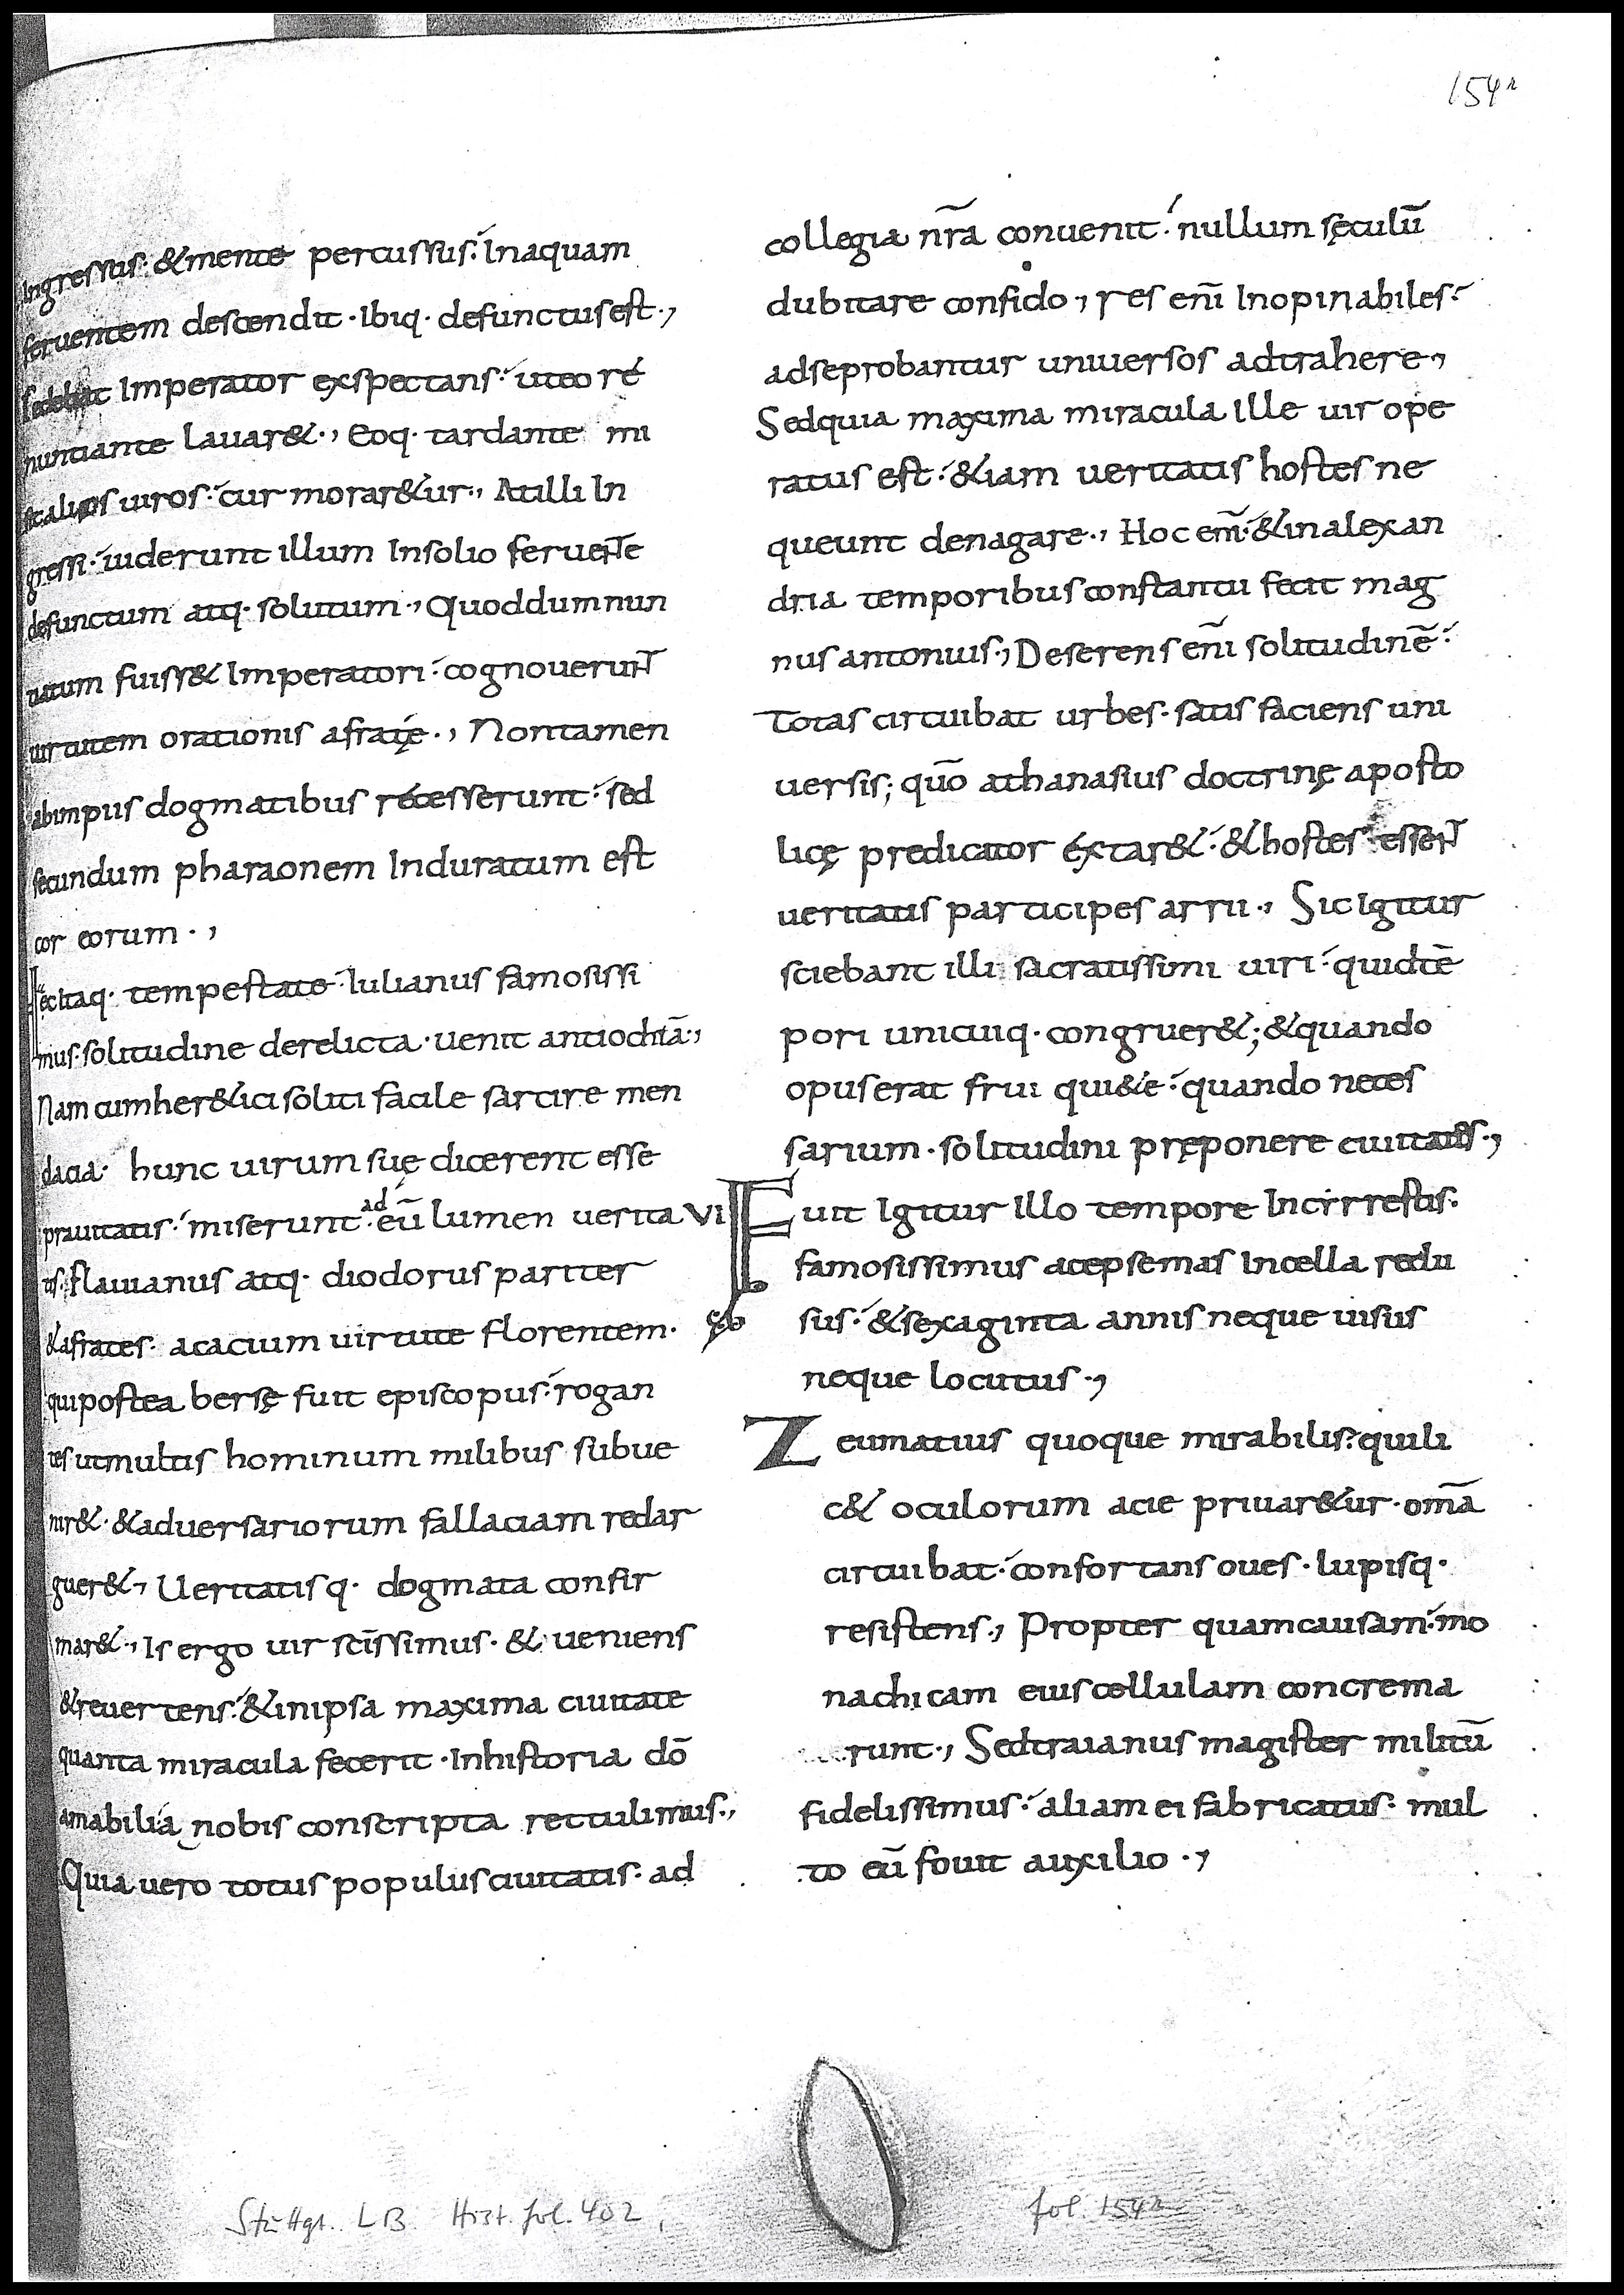 154r
Ingressus. & mente percussus. Inaquam
feruentem descendit. ibiq. defunctus est.,
sedebat Imperator exspectans. uteo re
nuntiante lauar&., eoq. tardante mi
sit alios uiros. cur morar&ur., At illi In
gressi. uiderunt illum Insolio feruente
defunctum atq. solutum., Quoddum nun
tiatum fuiss& Imperatori. cognouerunt
uirtutem orationis afratę., Nontamen
abimpiis dogmatibus recesserunt. sed
secundum pharaonem Induratum est
cor eorum.,
Hęcitaq. tempestate. Iulianus famosissi
mus. solitudine derelicta. uenit antiochiā.,
Nam cumher&ici soliti facile sarcire men
dacia. hunc uirum suę dicerent esse
prauitatis. miserunt ad eū lumen uerita
tis. flauianus atq. diodorus pariter
& afrates. acacium uirtute florentem.
qui postea bersę fuit episcopus. rogan
tes utmultis hominum milibus subue
nir&. & aduersariorum fallaciam redar
guer&, Ueritatisq. dogmata confir
mar&., Is ergo uir sc̄issimus. & ueniens
& reuertens. & inipsa maxima ciuitate
quanta miracula fecerit. Inhistoria dō
amabilia nobis conscripta rettulimus.,
Quia uero totus populus ciuitatis. ad
collegia nr̄a conuenit. nullum sęculū
dubitare confido, res eni̅ Inopinabiles.
adseprobantur uniuersos adtrahere,
Sedquia maxima miracula ille uir ope
ratus est. &iam ueritatis hostes ne
queunt denagare., Hoc em̅. & inalexan
dria temporibus constantii fecit mag
nus antonius., Deserens eni̅ solitudinē.
Totas circuibat urbes. satis faciens uni
uersis; quō athanasius doctrinę aposto
licę predicator extar&. & hostes essent
ueritatis participes arrii., Sic Igitur
sciebant illi sacratissimi uiri. quidtē
pori unicuiq. congruer&; & quando
opus erat frui qui&e. quando neces
sarium. solitudini pręponere ciuitates.,
VI Fuit Igitur Illo tempore Incirrestis.
famosissimus acepsemas Incella reclu
sus. & sexaginta annis neque uisus
neque locutus.,
Zeumatius quoque mirabilis. quili
c& oculorum acie priuar&ur. om̅a
circuibat. confortans oues. lupisq.
resistens., Propter quamcausam. mo
nachicam eius cellulam concrema
runt., Sedtraianus magister militū
fidelissimus. aliam ei fabricatus. mul
to eū fouit auxilio.,
Stuttgt. LB Hist. fol. 402,
fol. 154r